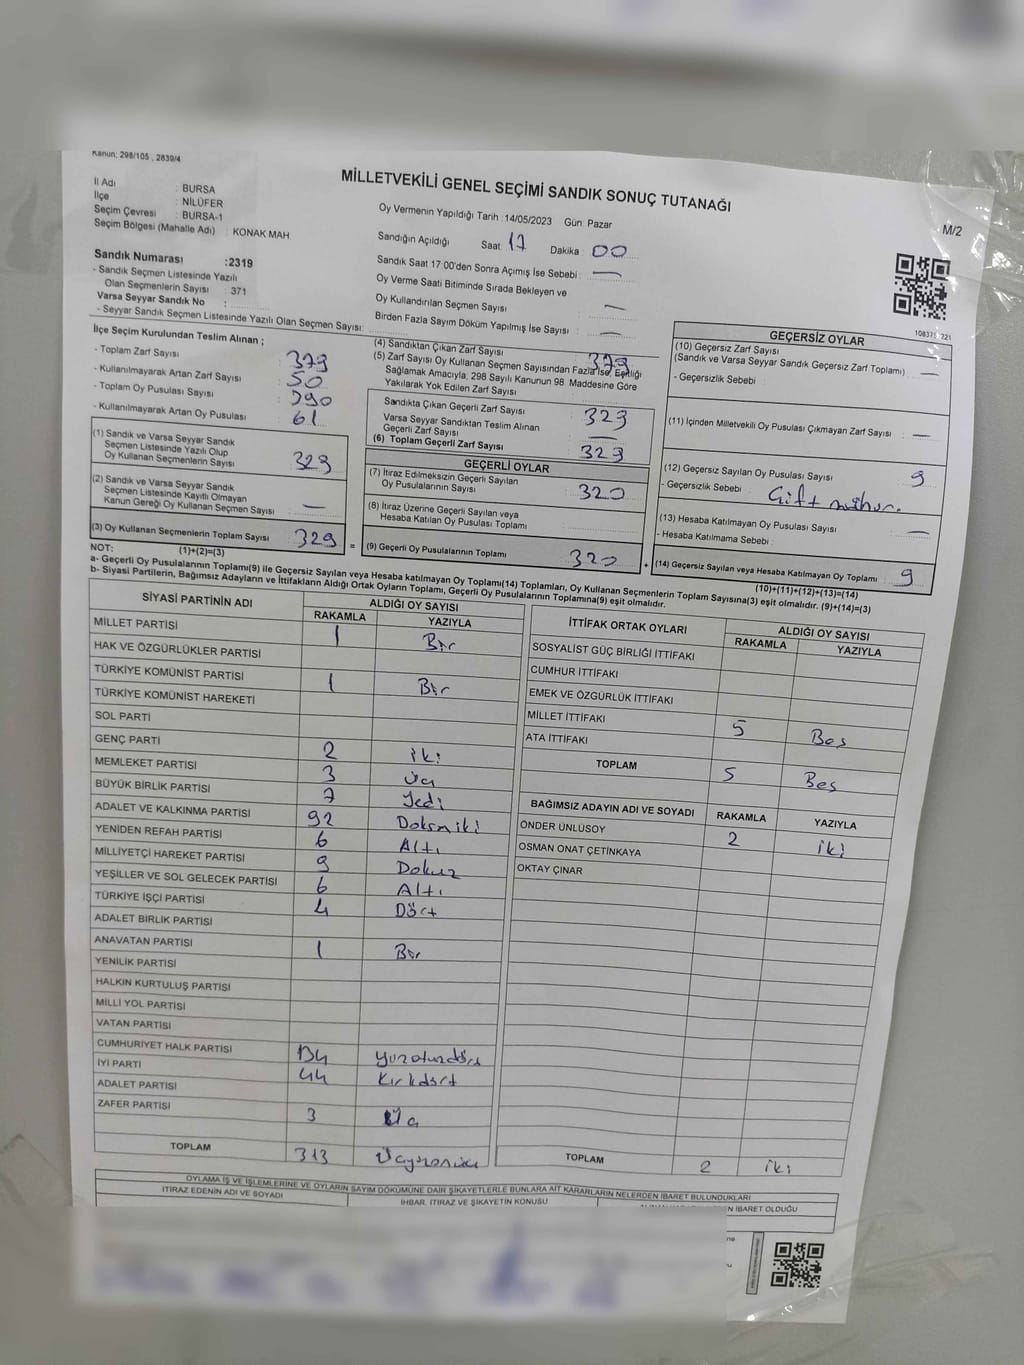 Kanun: 298/105 , 2839/4
MİLLETVEKİLİ GENEL SEÇİMİ SANDIK SONUÇ TUTANAĞI
M/2
İl Adı : BURSA
İlçe : NİLÜFER
Seçim Çevresi : BURSA-1
Seçim Bölgesi (Mahalle Adı) : KONAK MAH.
Oy Vermenin Yapıldığı Tarih :14/05/2023 Gün Pazar
Sandığın Açıldığı Saat: 17 Dakika : 00
Sandık Saat 17:00'den Sonra Açımış İse Sebebi : —
Oy Verme Saati Bitiminde Sırada Bekleyen ve
Oy Kullandırılan Seçmen Sayısı : —
Birden Fazla Sayım Döküm Yapılmış İse Sayısı : —
Sandık Numarası :2319
- Sandık Seçmen Listesinde Yazılı
Olan Seçmenlerin Sayısı : 371
Varsa Seyyar Sandık No :
- Seyyar Sandık Seçmen Listesinde Yazılı Olan Seçmen Sayısı:
İlçe Seçim Kurulundan Teslim Alınan ;
- Toplam Zarf Sayısı : 379
- Kullanılmayarak Artan Zarf Sayısı : 50
- Toplam Oy Pusulası Sayısı : 390
- Kullanılmayarak Artan Oy Pusulası : 61
(1) Sandık ve Varsa Seyyar Sandık
Seçmen Listesinde Yazılı Olup
Oy Kullanan Seçmenlerin Sayısı : 329
(2) Sandık ve Varsa Seyyar Sandık
Seçmen Listesinde Kayıtlı Olmayan
Kanun Gereği Oy Kullanan Seçmen Sayısı : —
(3) Oy Kullanan Seçmenlerin Toplam Sayısı : 329
(1)+(2)=(3)
(4) Sandıktan Çıkan Zarf Sayısı : 379
(5) Zarf Sayısı Oy Kullanan Seçmen Sayısından Fazla İse, Eşitliği
Sağlamak Amacıyla, 298 Sayılı Kanunun 98 Maddesine Göre
Yakılarak Yok Edilen Zarf Sayısı :
Sandıkta Çıkan Geçerli Zarf Sayısı : 329
Varsa Seyyar Sandıktan Teslim Alınan
Geçerli Zarf Sayısı : —
(6) Toplam Geçerli Zarf Sayısı : 329
GEÇERLİ OYLAR
(7) İtiraz Edilmeksizin Geçerli Sayılan
Oy Pusulalarının Sayısı : 320
(8) İtiraz Üzerine Geçerli Sayılan veya
Hesaba Katılan Oy Pusulası Toplamı :
= (9) Geçerli Oy Pusulalarının Toplamı : 320
GEÇERSİZ OYLAR
108371 221
(10) Geçersiz Zarf Sayısı
(Sandık ve Varsa Seyyar Sandık Geçersiz Zarf Toplamı) : —
- Geçersizlik Sebebi :
(11) İçinden Milletvekili Oy Pusulası Çıkmayan Zarf Sayısı : —
(12) Geçersiz Sayılan Oy Pusulası Sayısı : 9
- Geçersizlik Sebebi : Çift mühür.
(13) Hesaba Katılmayan Oy Pusulası Sayısı : —
- Hesaba Katılmama Sebebi :
+ (14) Geçersiz Sayılan veya Hesaba Katılmayan Oy Toplamı : 9
(10)+(11)+(12)+(13)=(14)
NOT:
a- Geçerli Oy Pusulalarının Toplamı(9) ile Geçersiz Sayılan veya Hesaba katılmayan Oy Toplamı(14) Toplamları, Oy Kullanan Seçmenlerin Toplam Sayısına(3) eşit olmalıdır. (9)+(14)=(3)
b- Siyasi Partilerin, Bağımsız Adayların ve İttifakların Aldığı Ortak Oyların Toplamı, Geçerli Oy Pusulalarının Toplamına(9) eşit olmalıdır.
SİYASİ PARTİNİN ADI ALDIĞI OY SAYISI
RAKAMLA YAZIYLA
MİLLET PARTİSİ 1 Bir
HAK VE ÖZGÜRLÜKLER PARTİSİ
TÜRKİYE KOMÜNİST PARTİSİ 1 Bir
TÜRKİYE KOMÜNİST HAREKETİ
SOL PARTİ
GENÇ PARTİ 2 iki
MEMLEKET PARTİSİ 3 Üç
BÜYÜK BİRLİK PARTİSİ 7 Yedi
ADALET VE KALKINMA PARTİSİ 92 Doksaniki
YENİDEN REFAH PARTİSİ 6 Altı
MİLLİYETÇİ HAREKET PARTİSİ 9 Dokuz
YEŞİLLER VE SOL GELECEK PARTİSİ 6 Altı
TÜRKİYE İŞÇİ PARTİSİ 4 Dört
ADALET BİRLİK PARTİSİ
ANAVATAN PARTİSİ 1 Bir
YENİLİK PARTİSİ
HALKIN KURTULUŞ PARTİSİ
MİLLİ YOL PARTİSİ
VATAN PARTİSİ
CUMHURİYET HALK PARTİSİ 134 Yüzotuzdört
İYİ PARTİ 44 Kırkdört
ADALET PARTİSİ
ZAFER PARTİSİ 3 Üç
TOPLAM 313 Üçyüzonüç
İTTİFAK ORTAK OYLARI ALDIĞI OY SAYISI
RAKAMLA YAZIYLA
SOSYALİST GÜÇ BİRLİĞİ İTTİFAKI
CUMHUR İTTİFAKI
EMEK VE ÖZGÜRLÜK İTTİFAKI
MİLLET İTTİFAKI 5 Beş
ATA İTTİFAKI
TOPLAM 5 Beş
BAĞIMSIZ ADAYIN ADI VE SOYADI RAKAMLA YAZIYLA
ÖNDER ÜNLÜSOY 2 iki
OSMAN ONAT ÇETİNKAYA
OKTAY ÇINAR
TOPLAM 2 iki
OYLAMA İŞ VE İŞLEMLERİNE VE OYLARIN SAYIM DÖKÜMÜNE DAİR ŞİKAYETLERLE BUNLARA AİT KARARLARIN NELERDEN İBARET BULUNDUKLARI
İTİRAZ EDENİN ADI VE SOYADI İHBAR, İTİRAZ VE ŞİKAYETİN KONUSU N İBARET OLDUĞU